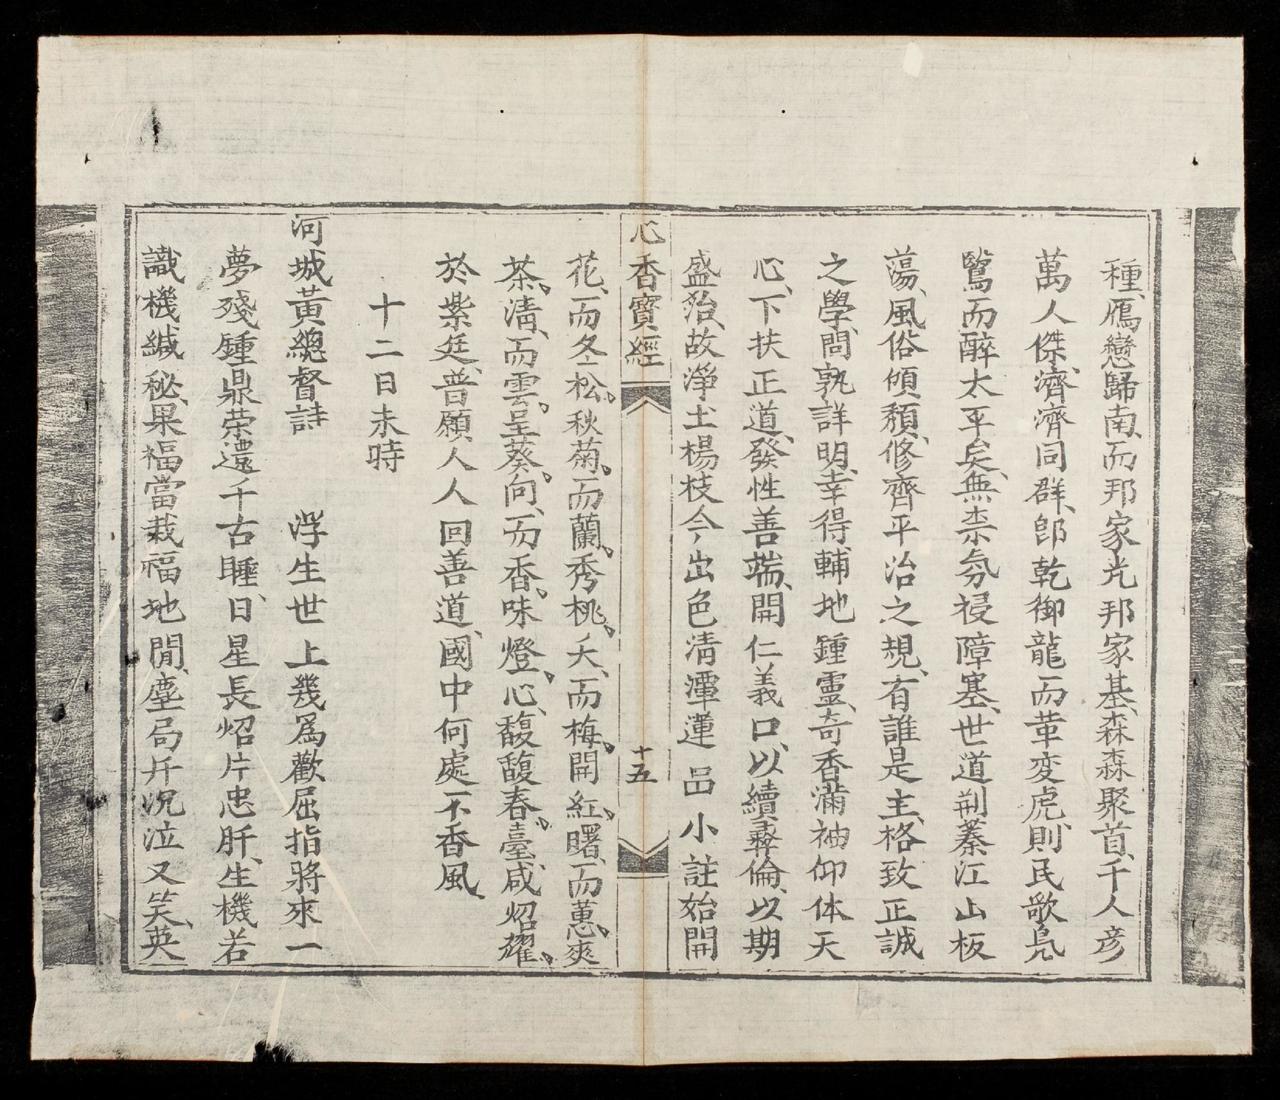 種、鴈戀歸南、而邦家光邦家基、森森聚首、千人彥
萬人傑、濟濟同群、即乾御龍而革变虎、則民歌鳧
鷖而醉太平矣、無柰氛祲障塞、世道荆蓁江山板
蕩、風俗傾頹、修齊平治之規、有誰是主、格致正誠
之學、問孰詳明、幸得輔地鍾靈、奇香滿袖仰体天
心、下扶正道、發性善端、開仁義口、以續彞倫、以期
盛治、故淨土楊枝今出色清潭蓮㗊小註始開
心香寳經
十五
花、而冬松、秋菊、而蘭秀桃、夭、而梅、開紅、曙、而蕙、爽
茶、清、而雲、呈葵、向、而香、味燈、心、馥馥春、臺、咸炤耀、
於紫廷、普願人人回善道、國中何處不香風、
十二日未時
河城黃總督詩　浮生世上幾爲歡屈指將來一
夢殘鍾鼎荣還千古睡、日星長炤片忠肝、生機若
識機緘秘、果福當栽福地閒、塵局片况泣又笑、英